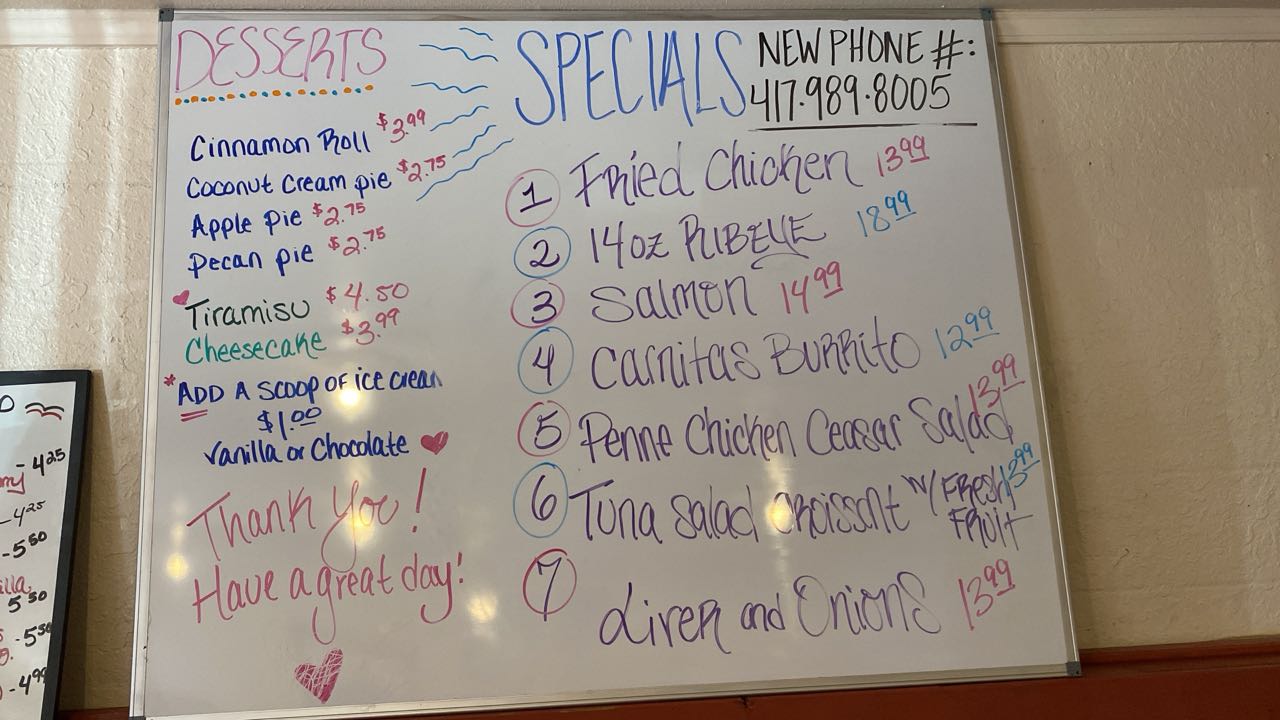 DESSERTS
Cinnamon Roll $3.99
Coconut Cream pie $2.75
Apple pie $2.75
Pecan pie $2.75
Tiramisu $4.50
Cheesecake $3.99
*ADD A scoop of ice cream
$1.00
Vanilla or Chocolate
Thank you!
Have a great day!
SPECIALS
NEW PHONE #:
417.989.8005
1 Fried Chicken 13.99
2 14oz RIBEYE 18.99
3 Salmon 14.99
4 Carnitas Burrito 12.99
5 Penne Chicken Ceasar Salad 13.99
6 Tuna Salad Croissant w/ FRESH FRUIT 13.99
7 Liver and Onions 13.99
- 4.25
- 4.25
- 5.50
5.50
- 5.50
- 4.99